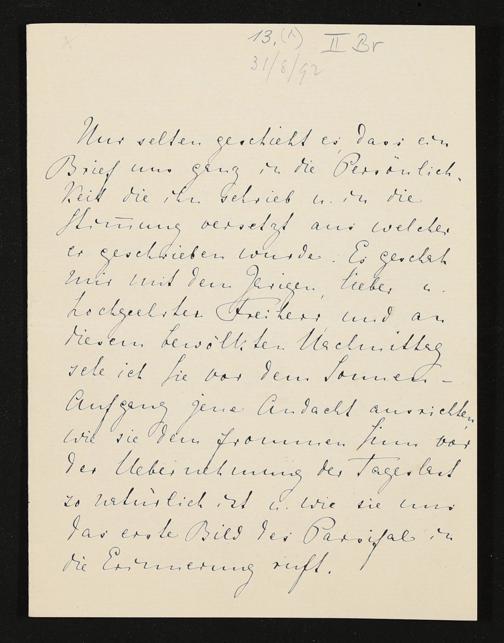 13. (1) II Br
31/8/92
Nur selten geschieht es, dass ein
Brief uns ganz in die Persönlich-
keit die ihn schrieb u. in die
Stim̅ung versetzt aus welcher
er geschrieben wurde. Es geschah
mir mit dem Ihrigen, lieber u.
hochgeehrter Freiherr und an
diesem bewölkten Nachmittag
sehe ich Sie vor dem Sonnen-
Aufgang jene Andacht ausrichten,
wie sie dem frommen Sinn vor
der Uebernehmung der Tageslast
so natürlich ist u. wie sie uns
das erste Bild des Parsifal in
die Erinnerung ruft.